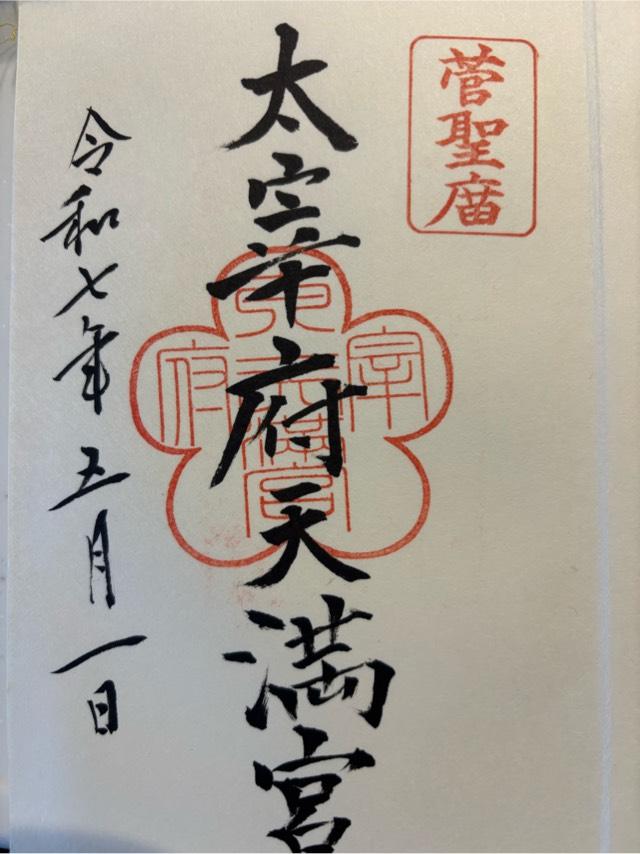 菅聖庿
太宰府天満宮
令和七年五月一日